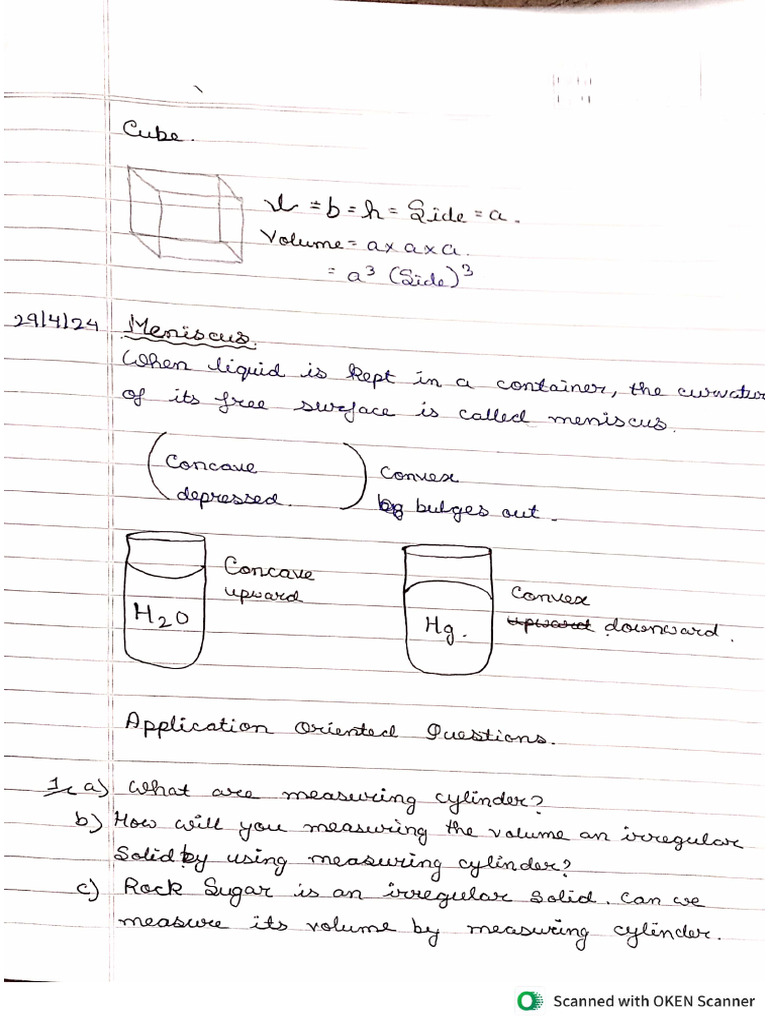 Cube.
l = b = h = Side = a.
Volume = a x a x a.
= a³ (Side)³
29/4/24 Meniscus.
When liquid is kept in a container, the curvatur
of its free surface is called meniscus.
Concave Convex
depressed. bulges out.
Concave
upward
H₂O
Convex
upward downward.
Hg.
Application Oriented Questions.
1. a) What are measuring cylinder?
b) How will you measuring the volume an irregular
Solid by using measuring cylinder?
c) Rock Sugar is an irregular solid. Can we
measure its volume by measuring cylinder.
Scanned with OKEN Scanner